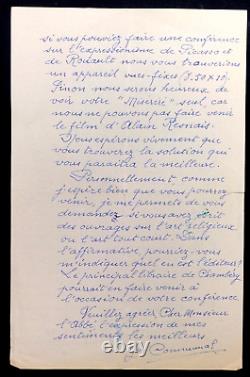 si vous pouviez faire une conférence
sur l'expressionisme de Picasso et
de Rouault nous vous trouverions
un appareil vues-fixes (8.50 x 10).
Sinon nous serons heureux de
voir votre "Miserere" seul, car
nous ne pouvons pas faire venir
le film d'Alain Resnais.
Nous espérons vivement que
vous trouverez la solution qui
vous paraîtra la meilleure.
Personnellement comme
j'espère bien que vous pourrez
venir, je me permets de vous
demander si vous avez écrit
des ouvrages sur l'art religieux
ou l'art tout court. Dans
l'affirmative pourriez-vous
m'indiquer quel en est l'éditeur?
Le principal libraire de Chambéry
pourrait en faire venir à
l'occasion de votre conférence
Veuillez agréer Cher Monsieur
l'Abbé l'expression de mes
sentiments les meilleurs